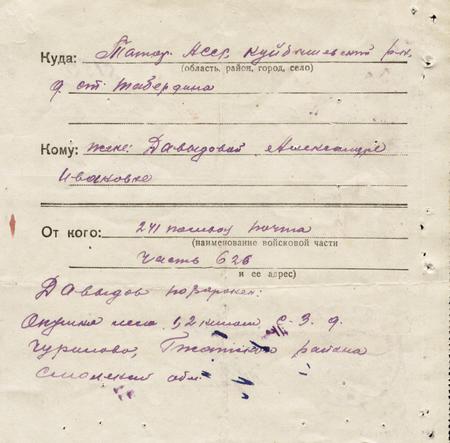 Куда: Татар. АССР, Куйбышевский р-н,
(область, район, город, село)
д. ст. Табердино
Кому: жене: Давыдовой Александре
Ивановне
От кого: 241 полевая почта
(наименование войсковой части
Часть 626
и ее адрес)
Давыдов похоронен:
Опушка леса 1,2 килом. С. З. д.
Чурилово, Гжатского района
Смоленской обл.